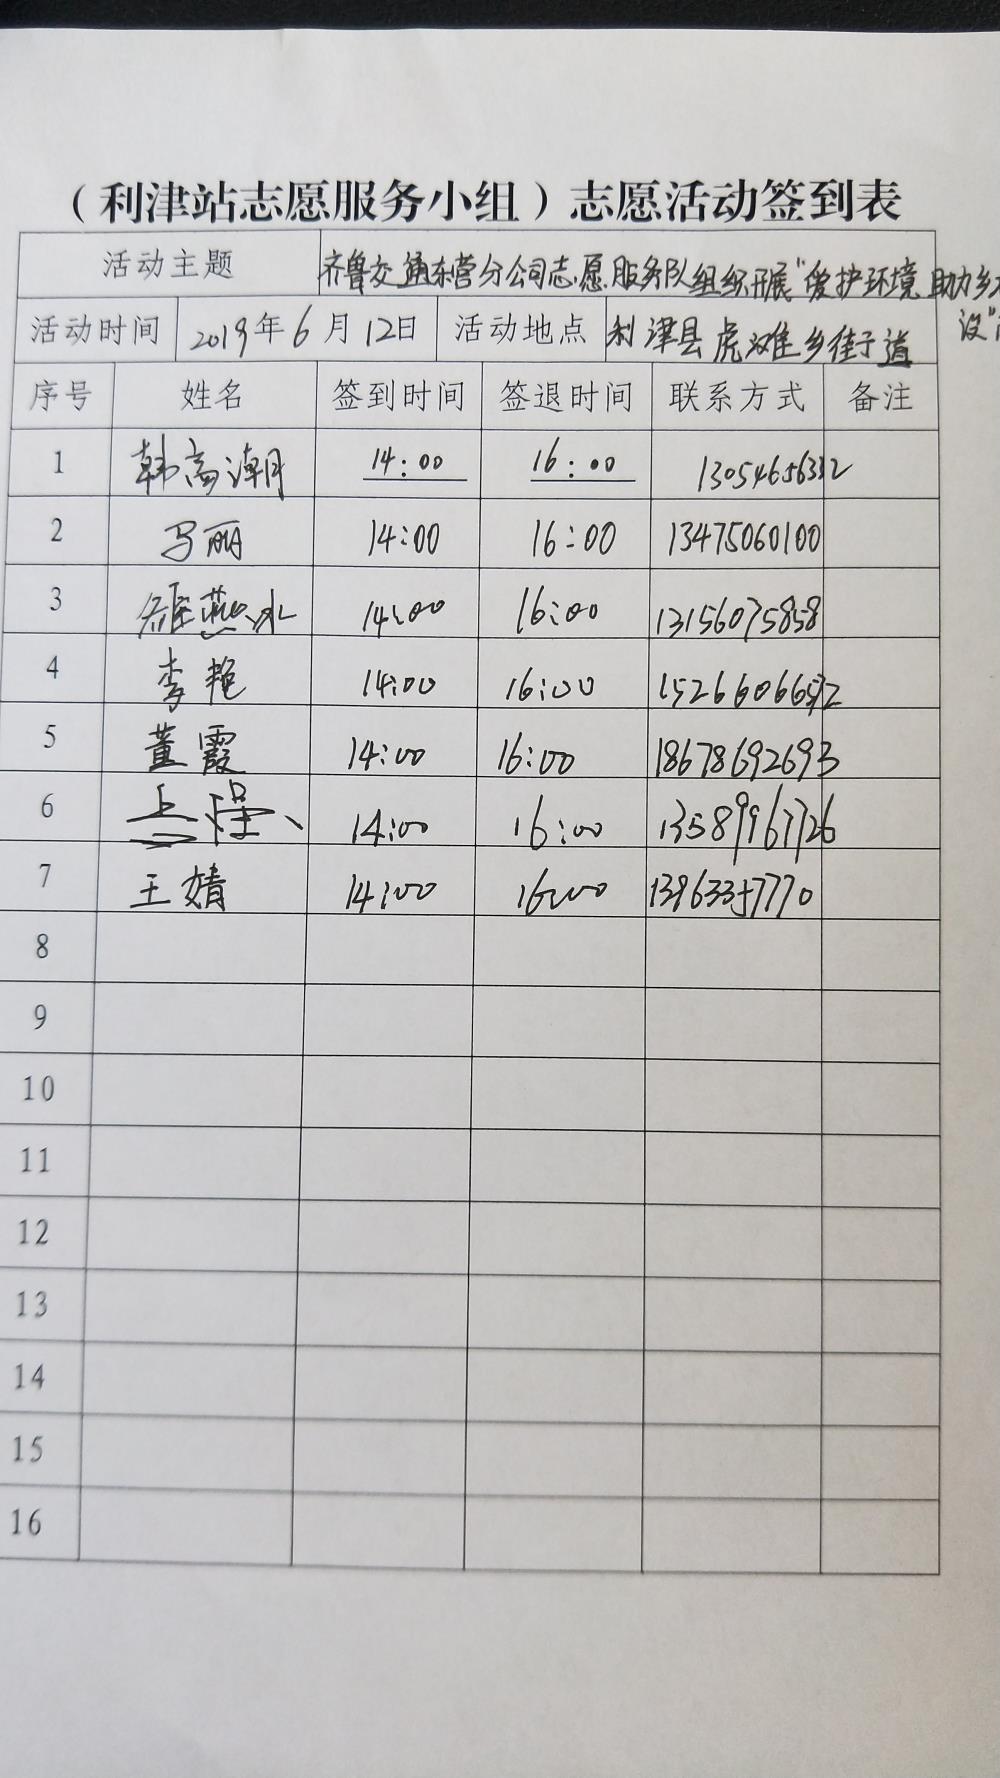 （利津站志愿服务小组）志愿活动签到表
活动主题 齐鲁交通东营分公司志愿服务队组织开展"爱护环境 助力乡
设"
活动时间 2019年6月12日 活动地点 利津县虎滩乡街道
序号 姓名 签到时间 签退时间 联系方式 备注
1 韩高潮 14:00 16:00
2 马丽 14:00 16:00 13475060100
3 14:00 16:00 13156075858
4 李艳 14:00 16:00
5 董霞 14:00 16:00 18678692693
6 14:00 16:00 13589967726
7 王婧 14:00 16:00
8
9
10
11
12
13
14
15
16